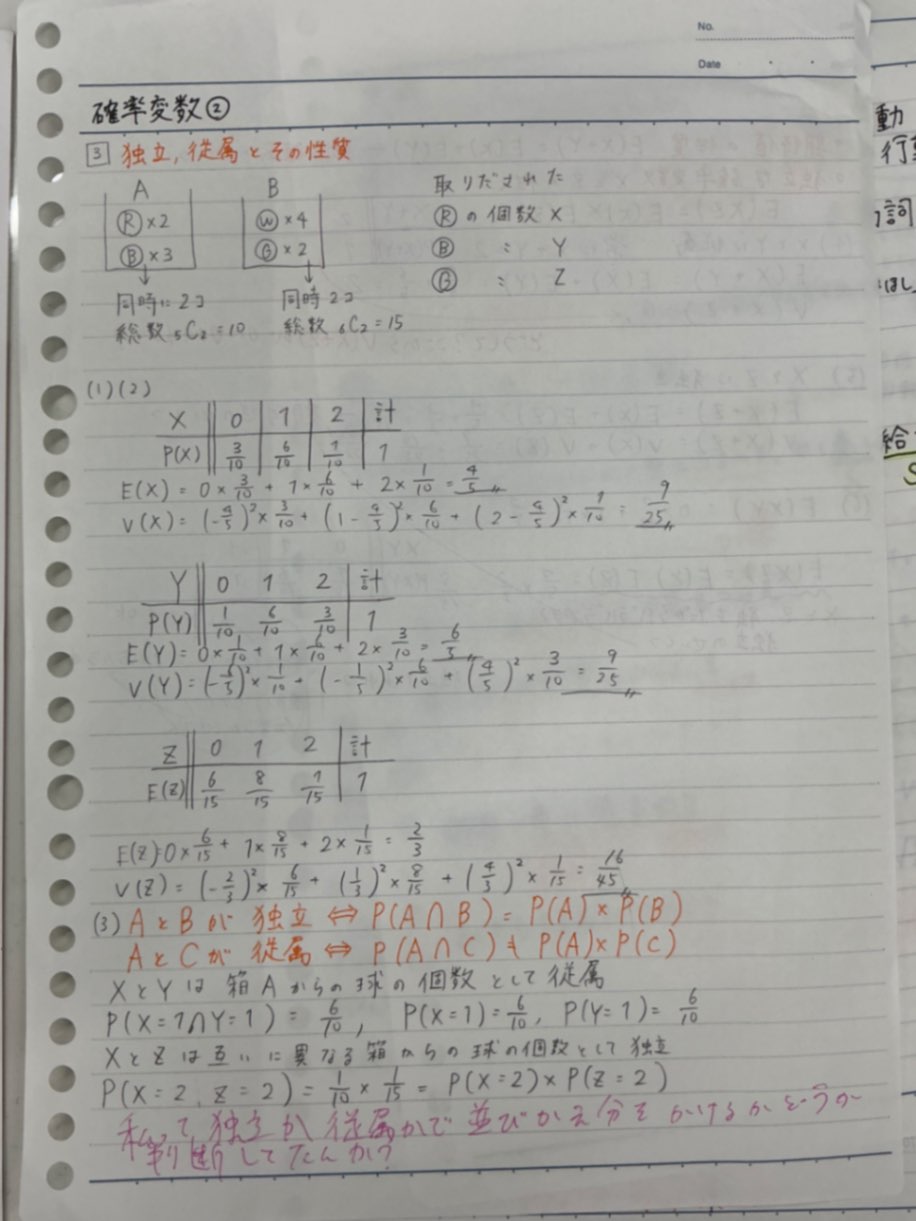 No.
Date
確率変数②
3 独立, 従属とその性質
A B
Ⓡ×2 Ⓦ×4
Ⓑ×3 Ⓑ×2
同時に2コ 同時2コ
総数 ₅C₂=10 総数 ₆C₂=15
取りだされた
Ⓡの個数 X
Ⓑ 〃 Y
Ⓑ 〃 Z
(1)(2)
X 0 1 2 計
P(X) 3/10 6/10 1/10 1
E(X) = 0×3/10 + 1×6/10 + 2×1/10 = 4/5
V(X) = (-4/5)²×3/10 + (1-4/5)²×6/10 + (2-4/5)²×1/10 = 9/25
Y 0 1 2 計
P(Y) 1/10 6/10 3/10 1
E(Y) = 0×1/10 + 1×6/10 + 2×3/10 = 6/5
V(Y) = (-6/5)²×1/10 + (-1/5)²×6/10 + (4/5)²×3/10 = 9/25
Z 0 1 2 計
E(Z) 6/15 8/15 1/15 1
E(Z)=0×6/15 + 1×8/15 + 2×1/15 = 2/3
V(Z) = (-2/3)²×6/15 + (1/3)²×8/15 + (4/3)²×1/15 = 16/45
(3) AとBが 独立 ⇔ P(A∩B) = P(A)×P(B)
AとCが 従属 ⇔ P(A∩C) ≠ P(A)×P(C)
XとYは 箱Aからの球の個数として従属
P(X=1∩Y=1) = 6/10, P(X=1)=6/10, P(Y=1)=6/10
XとZは互いに異なる箱からの球の個数として独立
P(X=2, Z=2) = 1/10 × 1/15 = P(X=2)×P(Z=2)
私って、独立か従属かで並びかえ分をかけるかどうか
判断してたんか?
動
行
詞
給